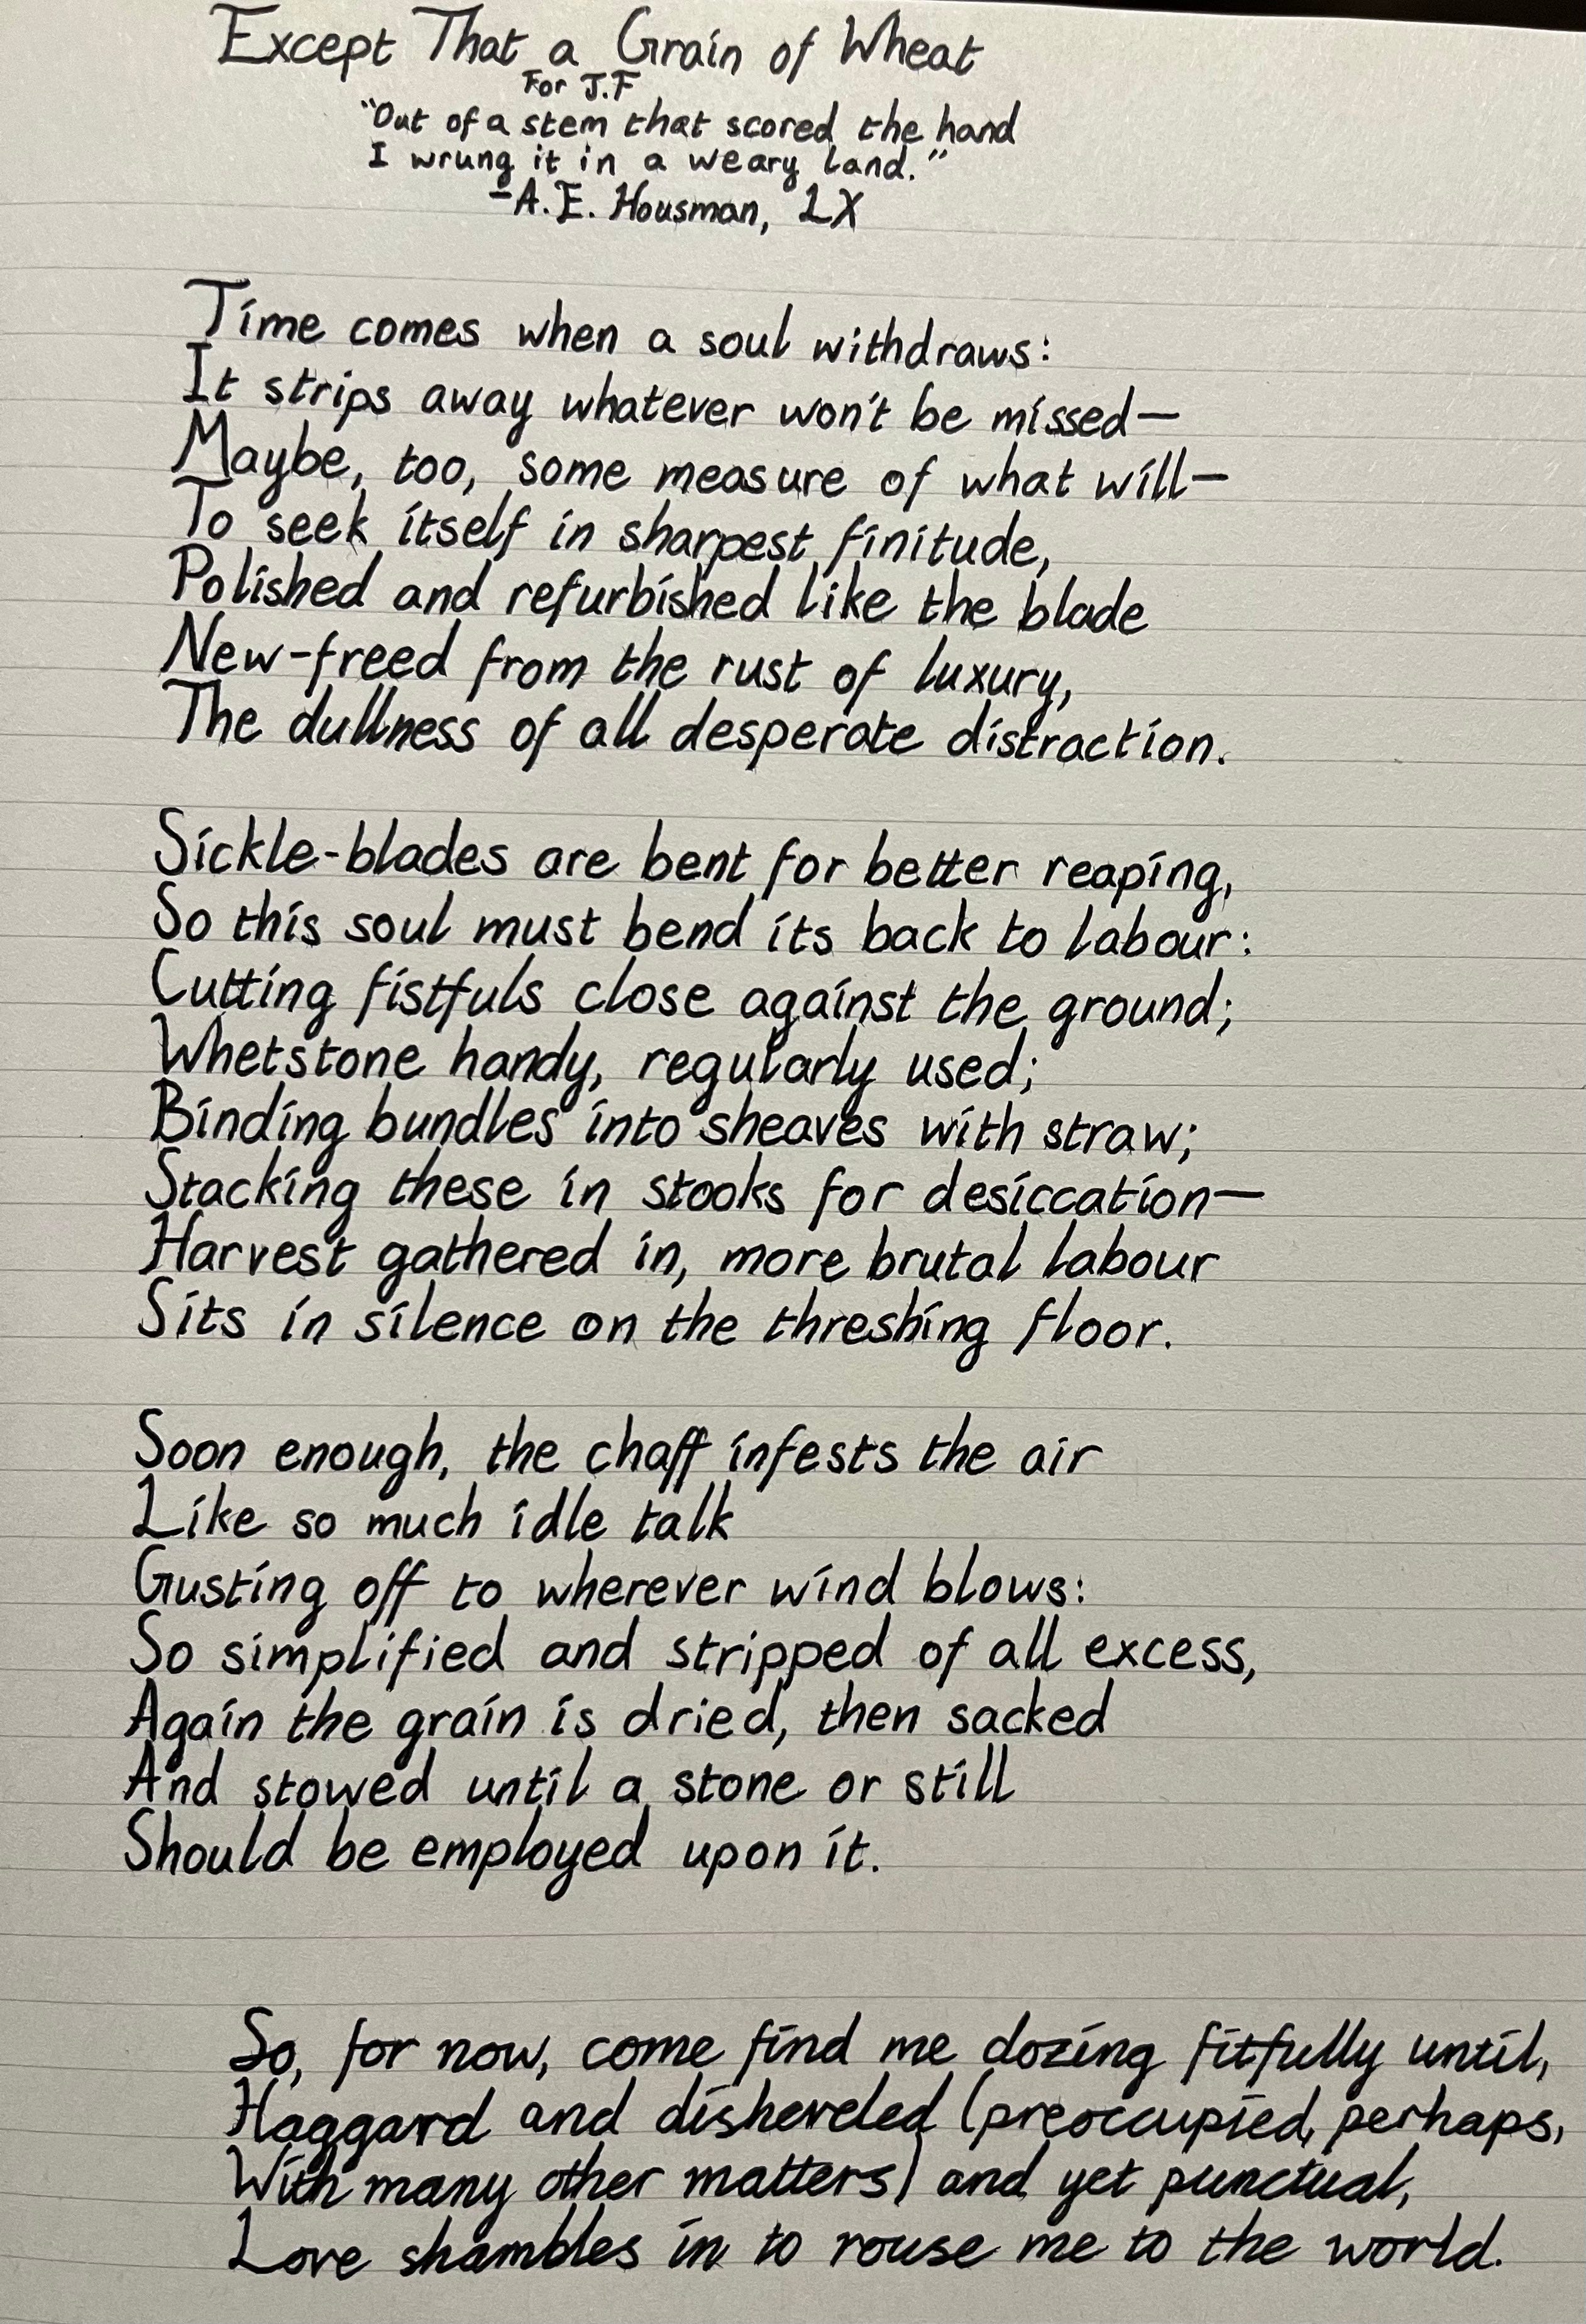 Except That a Grain of Wheat
For J.F
"Out of a stem that scored the hand
I wrung it in a weary land."
-A.E. Housman, LX
Time comes when a soul withdraws:
It strips away whatever won't be missed—
Maybe, too, some measure of what will—
To seek itself in sharpest finitude,
Polished and refurbished like the blade
New-freed from the rust of luxury,
The dullness of all desperate distraction.
Sickle-blades are bent for better reaping,
So this soul must bend its back to labour:
Cutting fistfuls close against the ground;
Whetstone handy, regularly used;
Binding bundles into sheaves with straw;
Stacking these in stooks for desiccation—
Harvest gathered in, more brutal labour
Sits in silence on the threshing floor.
Soon enough, the chaff infests the air
Like so much idle talk
Gusting off to wherever wind blows:
So simplified and stripped of all excess,
Again the grain is dried, then sacked
And stowed until a stone or still
Should be employed upon it.
So, for now, come find me dozing fitfully until,
Haggard and disheveled (preoccupied, perhaps,
With many other matters) and yet punctual,
Love shambles in to rouse me to the world.